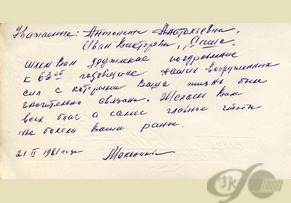 Уважаемые: Антонина Анатольевна,
Иван Викторович, Саша.
Шлем Вам дружеское поздравление
к 63ей годовщине наших вооруженных
сил с которыми Ваша жизнь была
значительно связана. Желаем Вам
всех благ а самое главное чтобы
не болели ваши раны.
21 II 1981 года